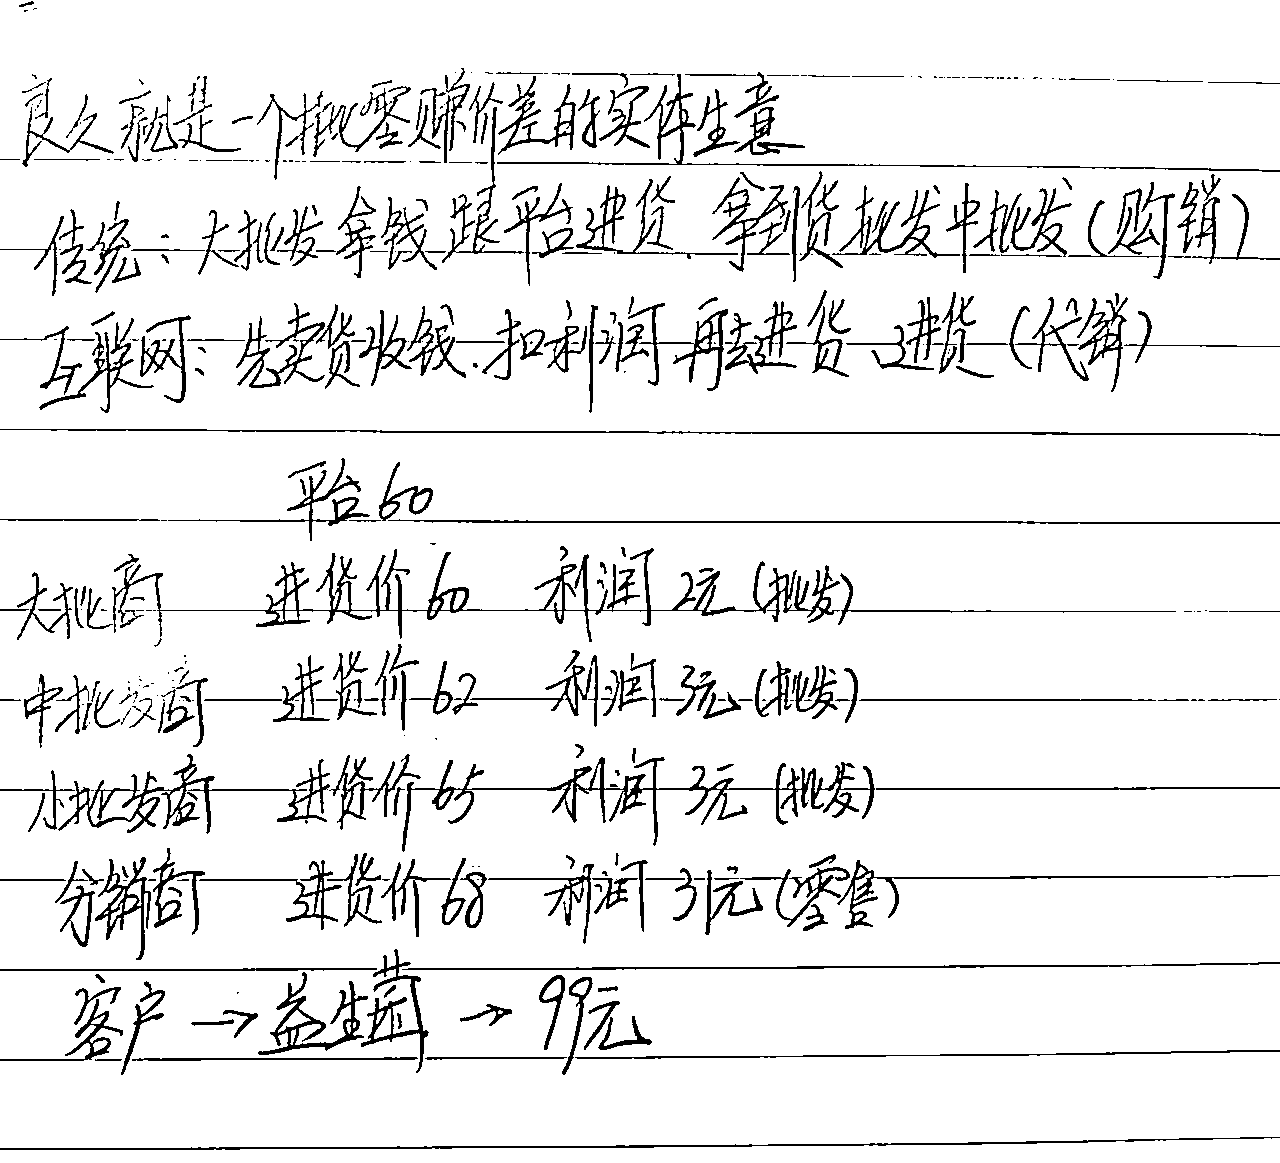 良久就是一个批零赚价差的实体生意
传统：大批发拿钱跟平台进货.拿到货批发中批发(购销)
互联网：先卖货收钱.扣利润再去进货、进货(代销)
平台60
大批商 进货价60 利润2元(批发)
中批发商 进货价62 利润3元(批发)
小批发商 进货价65 利润3元(批发)
分销商 进货价68 利润31元(零售)
客户→益生菌→99元